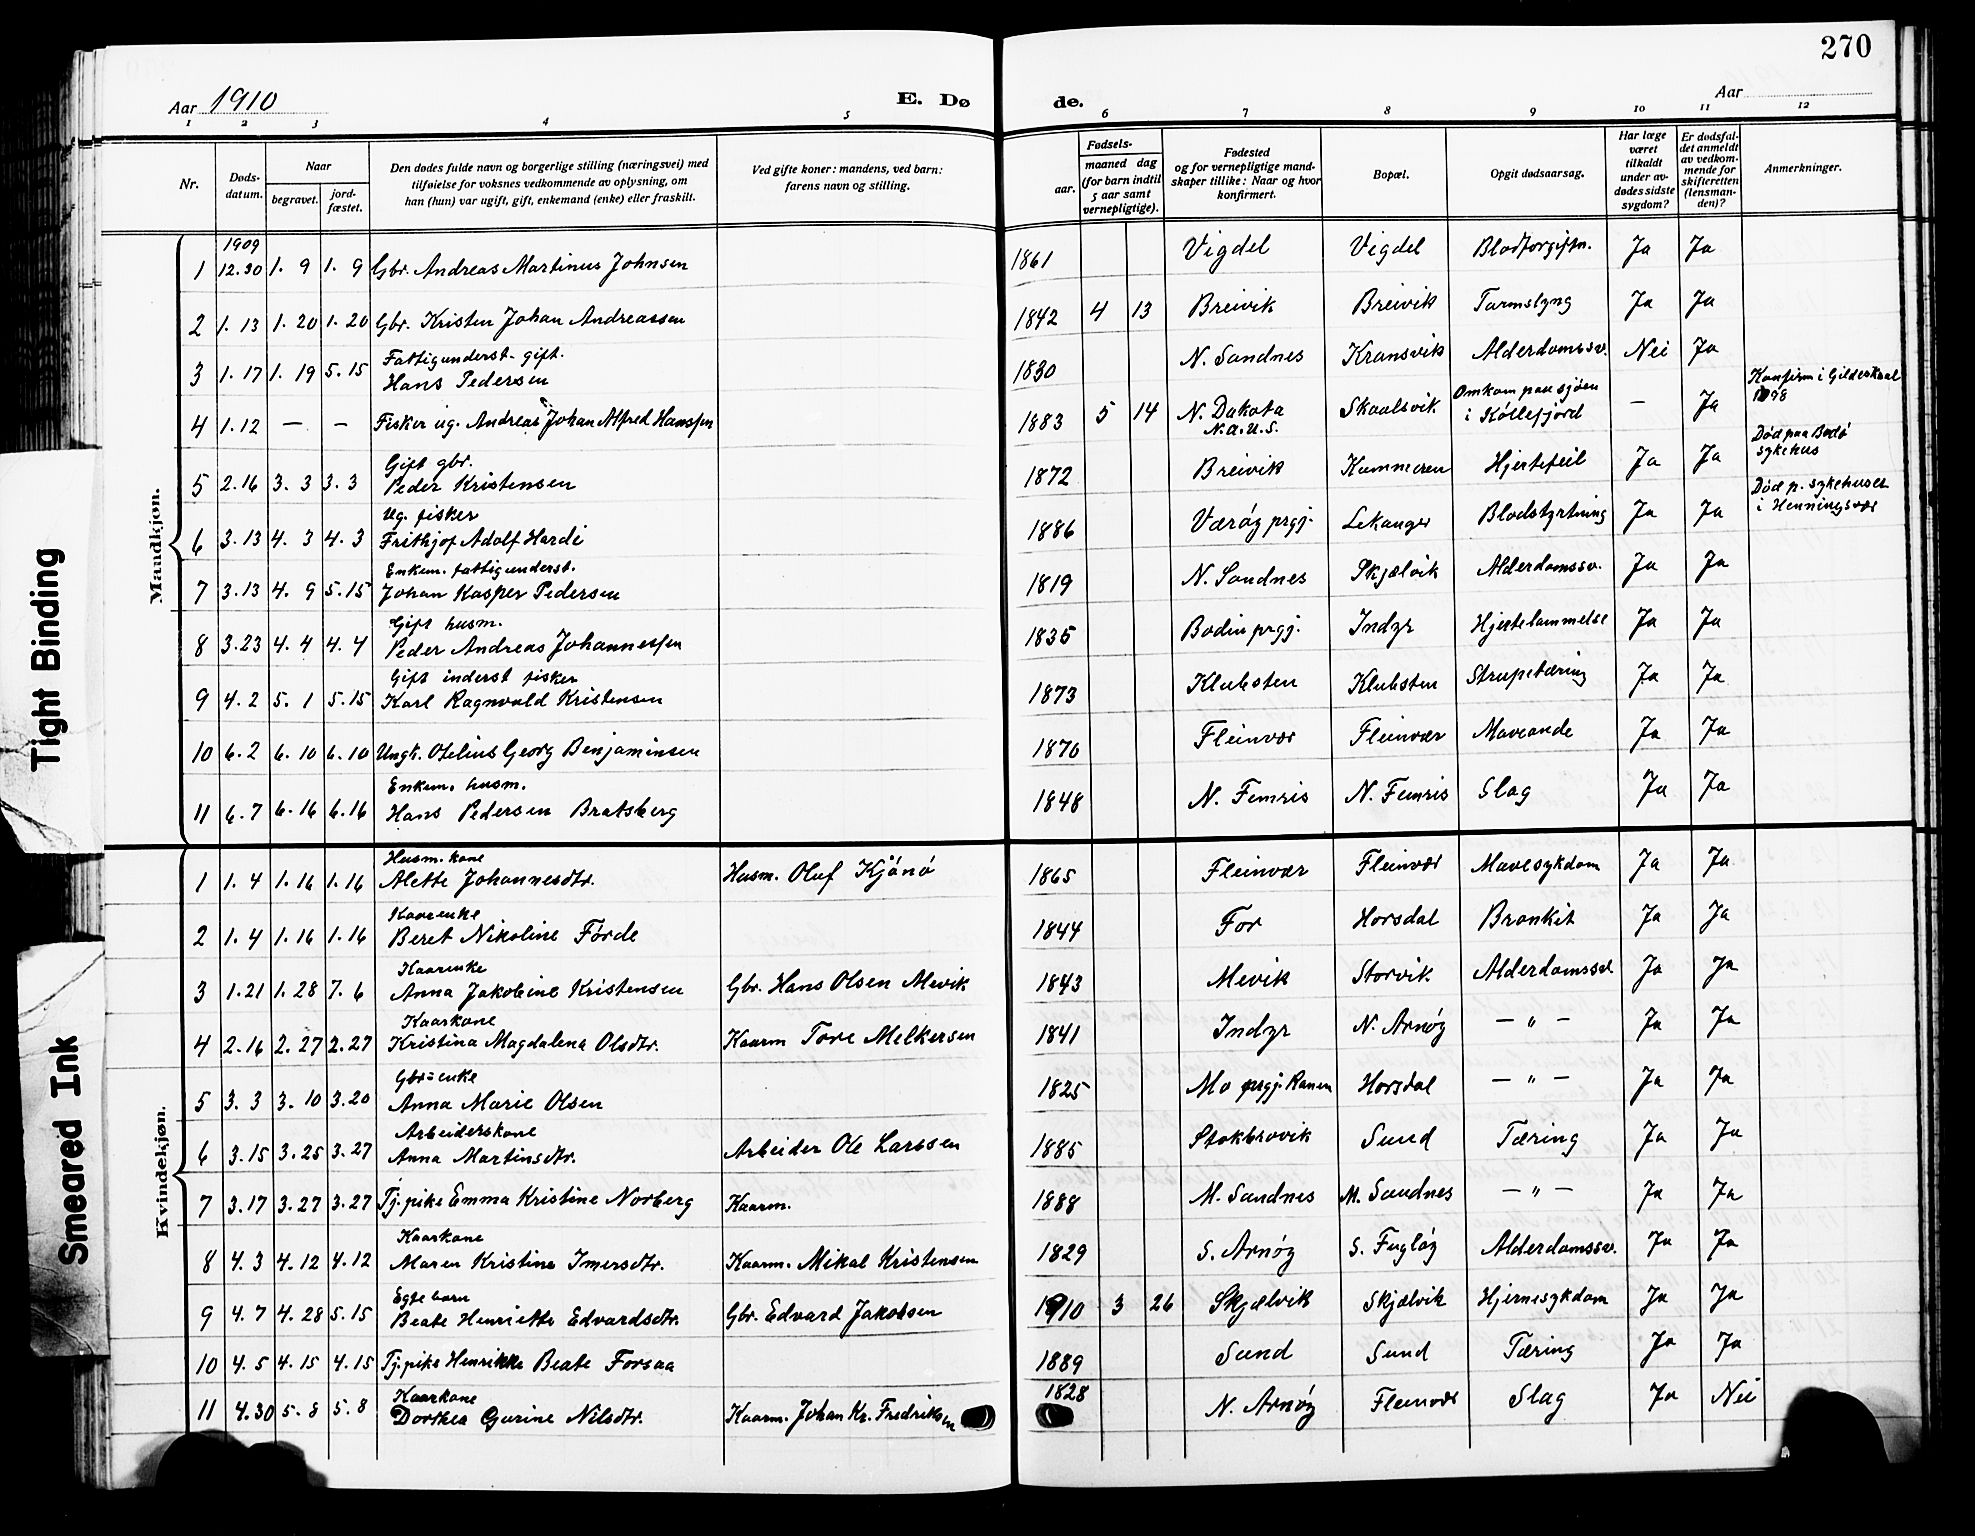 270
Aar 1910
E. Dø
de.
Aar
1 2 3 4 5 6 7 8 9 10 11 12
Nr.
Døds-
datum.
Naar
begravet.
jord-
fæstet.
Den dødes fulde navn og borgerlige stilling (næringsvei) med
tilføielse for voksnes vedkommende av oplysning, om
han (hun) var ugift, gift, enkemand (enke) eller fraskilt.
Ved gifte koner: mandens, ved barn:
farens navn og stilling.
Fødsels-
aar.
maaned dag
(for barn indtil
5 aar samt
vernepligtige).
Fødested
og for vernepligtige mand-
skaper tillike: Naar og hvor
konfirmert.
Bopæl.
Opgit dødsaarsag.
Har læge
været
tilkaldt
under av-
dødes sidste
sygdom?
Er dødsfal-
det anmeldt
av vedkom-
mende for
skifteretten
(lensman-
den)?
Anmerkninger.
Mandkjøn.
1909
1 12.30 1. 9 1. 9 Gbr. Andreas Martinus Johnsen 1861 Vigdel Vigdel Blodforgiftn. Ja Ja
2 1. 13 1. 20 1. 20 Gbr. Kristen Johan Andreassen 1842 4 13 Breivik Breivik Tarmslyng Ja Ja
Fattigunderst. gift.
3 1. 17 1. 19 5. 15 Hans Pedersen 1830 N. Sandnes Kransvik Alderdomssv. Nei Ja
4 1. 12 — — Fisker ug. Andreas Johan Alfred Hanssen 1883 5 14 N. Dakota
N.a.U.S. Skaalsvik Omkom paa sjøen
i Køllefjord — Ja Konfirm i Gildeskaal
1898
Gift gbr.
5 2. 16 3. 3 3. 3 Peder Kristensen 1872 Breivik Kummeren Hjertefeil Ja Ja Død paa Bodø
sykehus
Ug. fisker
6 3. 13 4. 3 4. 3 Frithjof Adolf Hardi 1886 Værøy prgj. Lekanger Blodstyrtning Ja Ja Død p. sykehuset
i Henningsvær
Enkem. fattigunderst.
7 3. 13 4. 9 5. 15 Johan Kasper Pedersen 1819 N. Sandnes Skjælvik Alderdomssv. Ja Ja
Gift husm.
8 3. 23 4. 4 4. 4 Peder Andreas Johannessen 1835 Bodin prgj. Indyr Hjertelammelse Ja Ja
Gift inderst fisker
9 4. 2 5. 1 5. 15 Karl Ragnvald Kristensen 1873 Klubsten Klubsten Strupetæring Ja Ja
10 6. 2 6. 10 6. 10 Ungk. Otelius Georg Benjaminsen 1870 Fleinvær Fleinvær Maveonde Ja Ja
Enkem. husm.
11 6. 7 6. 16 6. 16 Hans Pedersen Bratsberg 1848 N. Femris N. Femris Slag Ja Ja
Kvindekjøn.
Husm. kone
1 1. 4 1. 16 1. 16 Alette Johannesdtr. Husm. Oluf Kjønø 1865 Fleinvær Fleinvær Mavesykdom Ja Ja
Kaarenke
2 1. 4 1. 16 1. 16 Beret Nikoline Førde 1844 For Horsdal Bronkit Ja Ja
Kaarenke
3 1. 21 1. 28 7. 6 Anna Jakobine Kristensen Gbr. Hans Olsen Mevik 1843 Mevik Storvik Alderdomssv. Ja Ja
Kaarkone
4 2. 16 2. 27 2. 27 Kristina Magdalena Olsdtr. Kaarm Tore Melkersen 1841 Indyr N. Arnøy — " — Ja Ja
Gbr.enke
5 3. 3 3. 10 3. 20 Anna Marie Olsen 1825 Mo prgj. Ranen Horsdal — " — Ja Ja
Arbeiderskone
6 3. 15 3. 25 3. 27 Anna Martinsdtr. Arbeider Ole Larssen 1885 Stokbrovik Sund Tæring Ja Ja
7 3. 17 3. 27 3. 27 Tj.pike Emma Kristine Norberg Kaarm. 1888 M. Sandnes M. Sandnes — " — Ja Ja
Kaarkone
8 4. 3 4. 12 4. 12 Maren Kristine Imersdtr. Kaarm. Mikal Kristensen 1829 S. Arnøy S. Fugløy Alderdomssv. Ja Ja
Egte barn
9 4. 7 4. 28 5. 15 Beate Henriette Edvardsdtr. Gbr. Edvard Jakobsen 1910 3 26 Skjælvik Skjælvik Hjernesykdom Ja Ja
10 4. 5 4. 15 4. 15 Tj.pike Henrikke Beate Forsaa 1889 Sund Sund Tæring Ja Ja
Kaarkone
11 4. 30 5. 8 5. 8 Dorthea Gurine Nilsdtr. Kaarm. Johan Kr. Fredriksen 1828 N. Arnøy Fleinvær Slag Ja Nei
Tight Binding
Smeared Ink